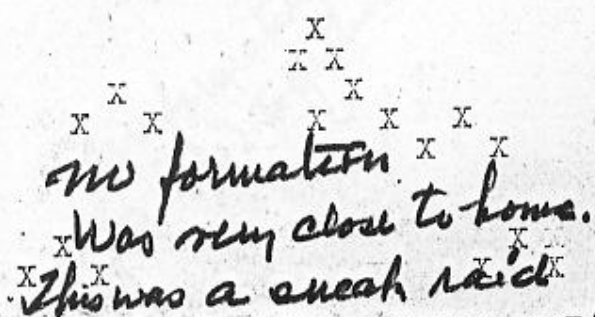 X
X X
X
X
X X X X X
X X
no formation
Was very close to home.
X X
X X X X
This was a sneak raid